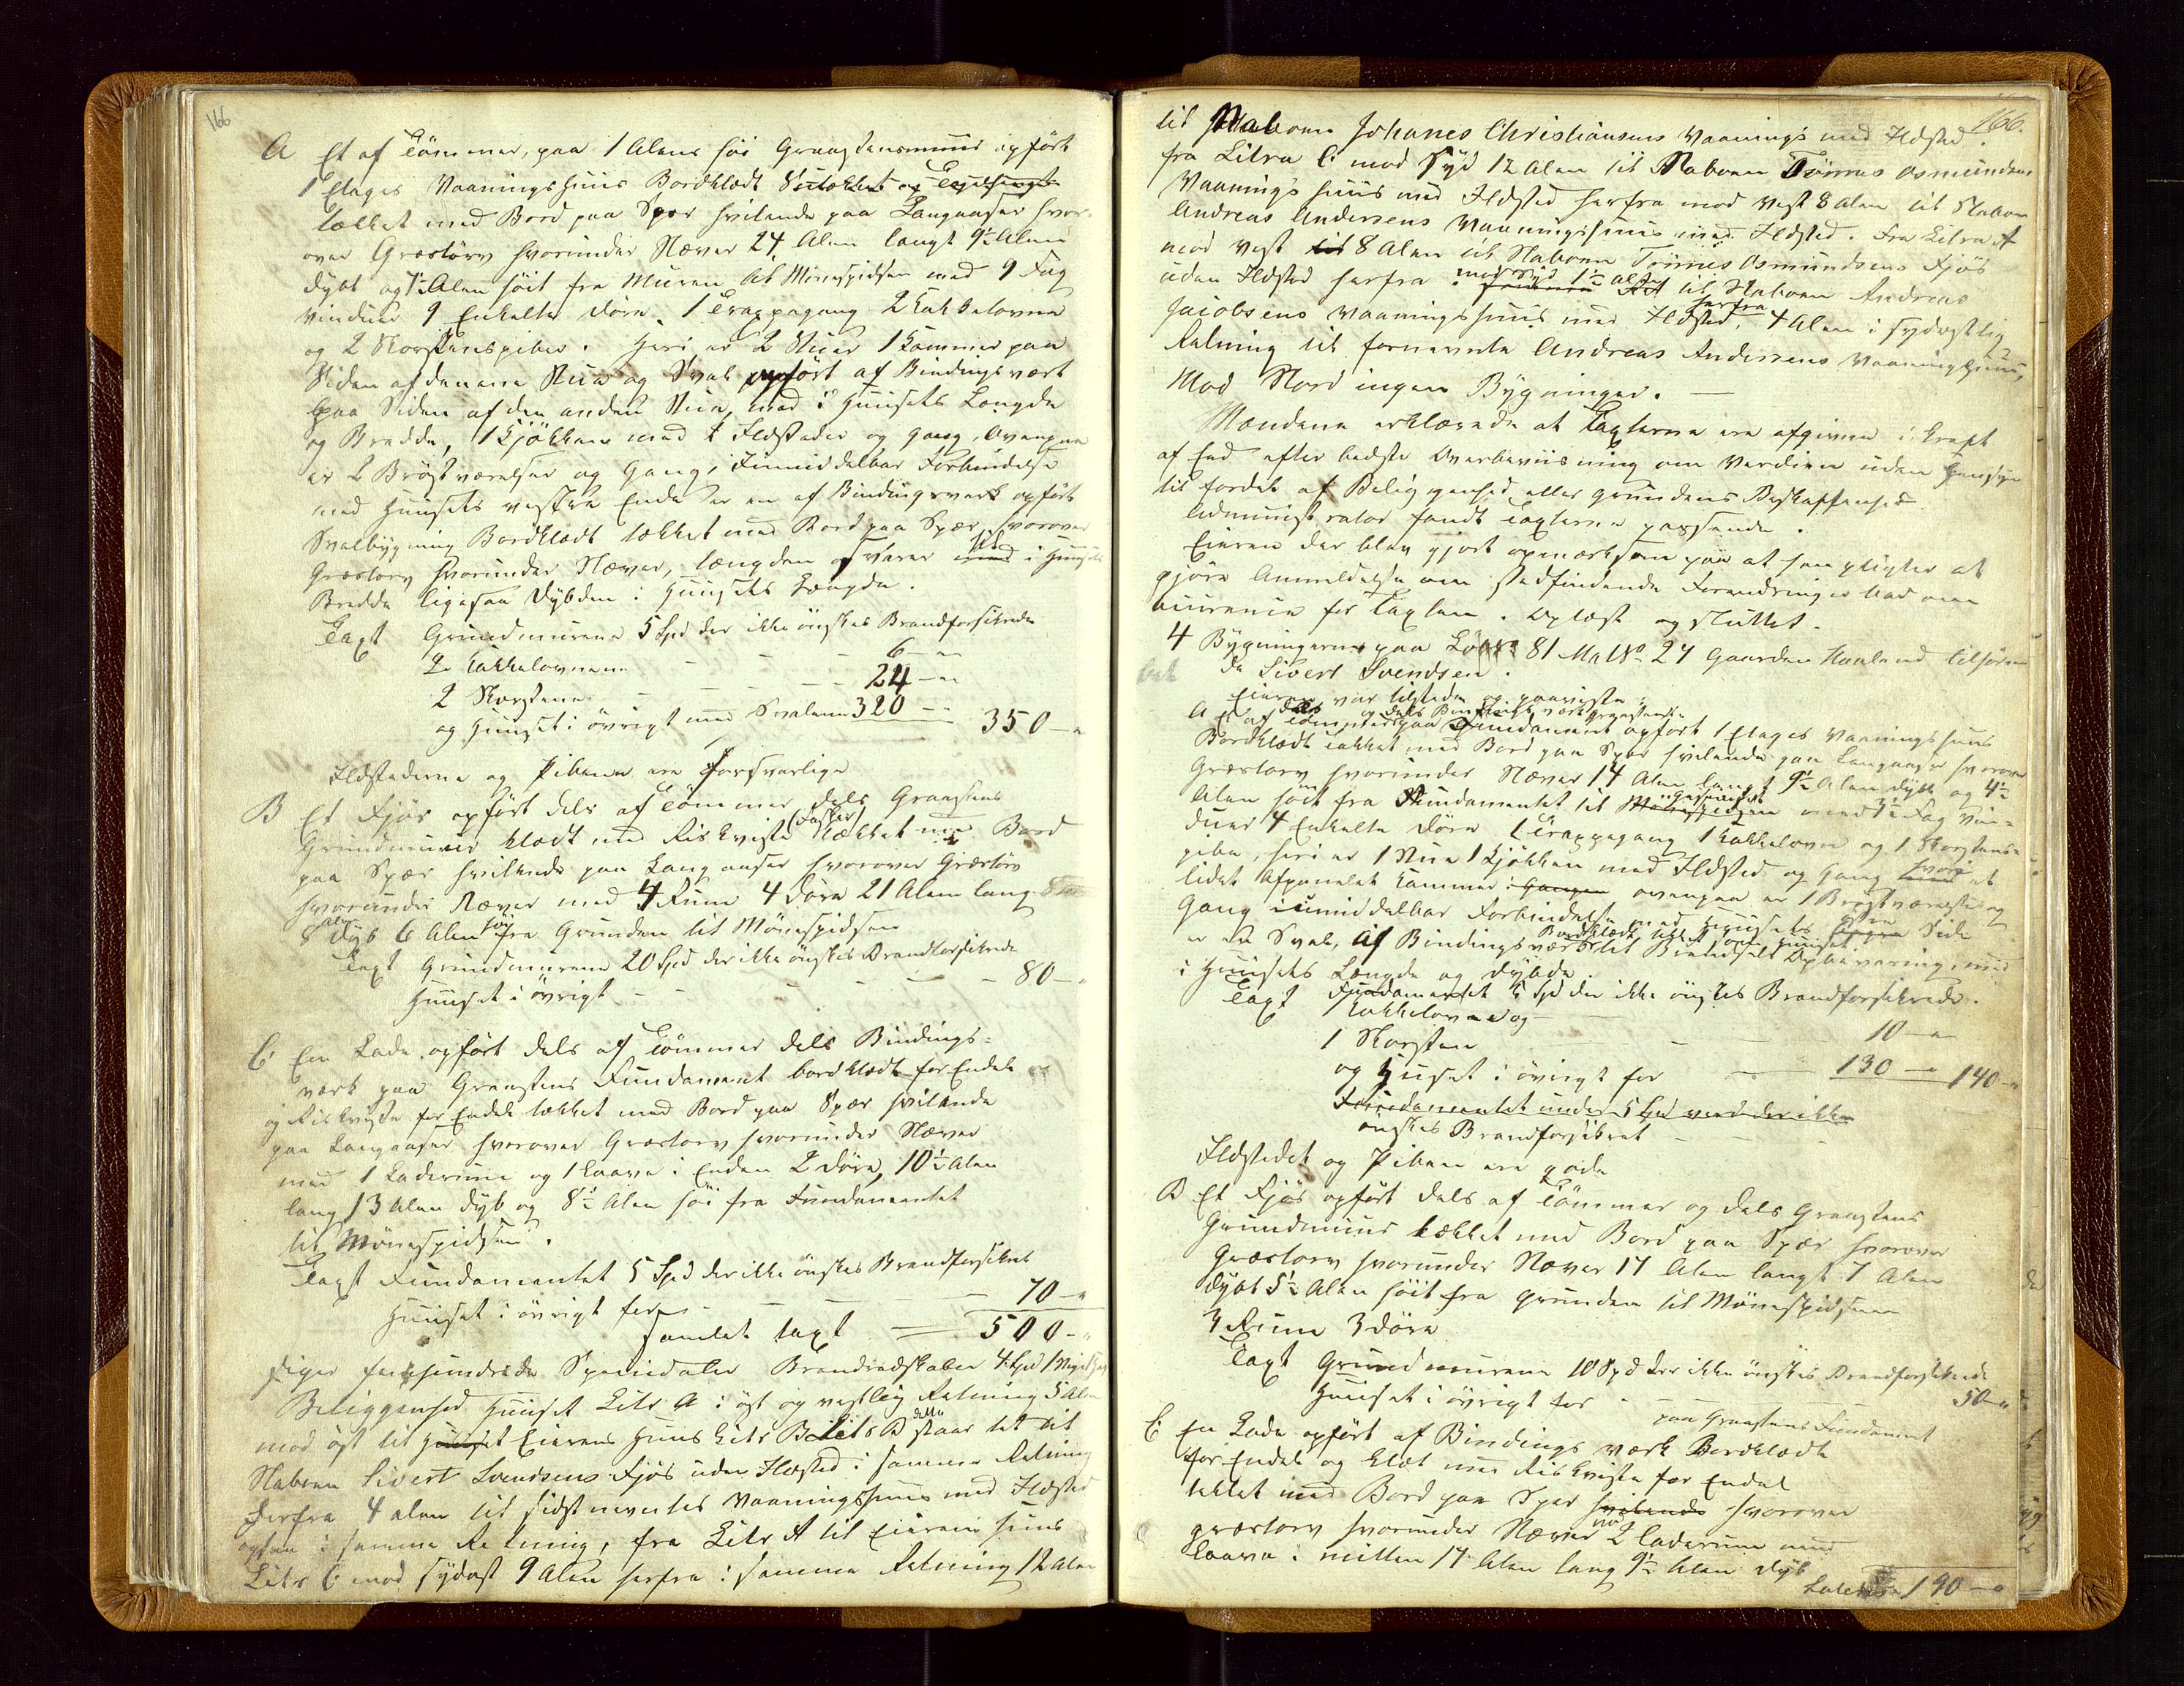 166
A Et af Tömmer, paa 1 Alens höi Graastensmuur opfört
1 Etages Vaaningshuus Bordklædt Sutækket og Teglhængt
tækket med Bord paa Spær hvilende paa Langaaser hvor-
over Græstörv hvorunder Næver 24 Alen langt 9½ Alen
dybt og 7½ Alen höit fra Muren til Mönespidsen med 9 Fag
Vinduer 9 Enkelte Döre 1 Trappegang 2 Kakkelovne
og 2 Skorstenspiber. Heri er 2 Stuer 1 Kammer paa
Siden af den ene Stue og Sval opfört af Bindingsværk
paa Siden af den anden Stue, med i Huusets Længde
og Bredde, 1 Kjökken med 2 Ildsteder og Gang, Ovenpaa
er 2 Bröstværelser og Gang, i umiddelbar Forbindelse
med Huusets vestre Ende er en af Bindingsværk opfört
Svalbygning Bordklædt tækket med Bord paa Spær, hvorover
Græstorv hvorunder Næver, længden er til i Huusets
Bredde ligesaa Dybden i Huusets Længde.
Taxt Grundmurene 5 Spd der ikke önskes Brandforsikrede
2 Kakkelovnene - - - 6 - "
2 Skorstene - - - 24 - "
og Huuset i övrigt med Svalene 320 - " 350 - "
Ildstederne og Piberne ere forsvarlige
B Et Fjös opfört dels af Tömmer dels Graastens
Grundmuur klædt med Riskviste (Fasker) tækket med Bord
paa Spær hvilende paa Langaaser hvorover Græstörv
hvorunder Næver med 4 Rum 4 Döre 21 Alen lang
8 Alen dyb 6 Alen höi fra Grunden til Mönespidsen
Taxt Grundmurene 20 Spd der ikke önskes Brandforsikrede
Huuset i övrigt - - - - 80 - "
C En Lade opfört dels af Tömmer dels Bindings=
værk paa Graastens Fundament bordklædt for Endel
og Riskviste for Endel tækket med Bord paa Spær hvilende
paa Langaaser hvorover Græstorv hvorunder Næver
med 1 Laderum og 1 Laave i Enden 2 Döre, 10½ Alen
lang 13 Alen dyb og 8½ Alen höi fra Fundamentet
til Mönespidsen.
Taxt Fundamentet 5 Spd der ikke önskes Brandforsikret
Huuset i övrigt for - - - 70 - "
Samlet taxt 500 - "
siger femhundrede Speciedaler Brandredskaber 4 Spd
Beliggenhed Huuset Litr A i öst og vestlig Retning 5 Alen
mod öst til Huuset Eierens Huus Litr B Litr B dette staar tet til
Naboen Sivert Svendsens Fjös uden Ildsted i samme Retning
Derfra 4 alen til sidstnevntes Vaaningshuus med Ildsted
ogsaa i samme Retning, fra Litr A til Eierens Huus
Litr C mod sydost 9 Alen herfra i samme Retning 12 Alen
166.
til Naboen Johanes Christiansens Vaanings med Ildsted.
fra Litra C mod Syd 12 Alen til Naboen Tönnes Osmundsens
Vaaningshuus med Ildsted herfra mod Vest 8 Alen til Naboen
Andreas Andersens Vaaningshuus med Ildsted. Fra Litra A
mod Vest til 8 Alen til Naboen Tönnes Osmundsens Fjös
uden Ildsted herfra mod Syd 1½ Alen til Naboen Andreas
Jacobsens Vaaningshuus med Ildsted, herfra 4 Alen i sydvestlig
Retning til fornævnte Andreas Andersens Vaaningshuus,
Mod Nord ingen Bygninger. —
Mændene erklærede at Taxterne ere afgivne i kraft
af Eed efter bedste Overbeviisning om Verdien uden Hensyn
til fordel af Beliggenhed eller Grundens Beskaffenhed
Administrator fandt Taxterne passende.
Eieren der blev gjort opmærksom paa at han pligter at
gjöre Anmeldelse om stedfindende Forandringer
Oplæst og sluttet.
4 Bygningerne paa Löbe 81 Ma No 24 Gaarden Haaland tilhörende
Sivert Svendsen.
Eieren var tilstede og paaviste:
A Et dels af Tömmer og dels Bindingsværk paa Graastens Fundament opfört 1 Etages Vaaningshuus
Bordklædt tækket med Bord paa Spær hvilende paa Langaaser hvorover
Græstorv hvorunder Næver 14 Alen langt 9½ Alen dybt og 4½
Alen höit fra Fundamentet til Gesimsen med 7½ Fag Vin=
duer 4 Enkelte Döre 1 Trappegang 1 Kakkelovn og 1 Skorstens=
pibe, heri er 1 Stue 1 Kjökken med Ildsted og Gang hvori et
lidet Afpanelet Kammer i Gangen ovenpaa er 1 Bröstværelse og
Gang i umiddelbar Forbindelse med Huusets Side
er en Sval, af Bindingsværk Bordklædt til Opbevaring, med
i Huusets Længde og Dybde.
Taxt Fundamentet 5 Spd der ikke önskes Brandforsikrede.
1 Kakkelovn og
1 Skorsten - - - 10 - "
og Huuset i övrigt for - 130 - " 140 - "
Fundamentet under 5 Spd værd der ikke
önskes Brandforsikret - - -
Ildstedet og Piben ere gode
B Et Fjös opfört dels af Tömmer og dels Graastens
Grundmuur tækket med Bord paa Spær hvorover
Græstorv hvorunder Næver 17 Alen langt 7 Alen
dybt 5½ Alen höit fra Grunden til Mönespidsen
3 Rum 3 döre
Taxt Grundmurene 10 Spd der ikke önskes Brandforsikrede
Huuset i övrigt for - 50 - "
C En Lade opfört af Bindingsværk paa Graastens Fundament Bordklædt
for Endel og klædt med Riskviste for Endel
tækket med Bord paa Spær hvilende hvorover
græstorv hvorunder Næver med 2 laderum med
Laave i midten 17 Alen lang 9½ Alen dyb
Lateris 190 - "